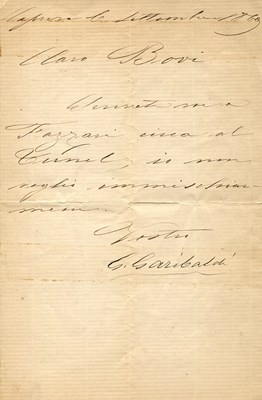 Caprera 16 Settembre 1869
Caro Bovi
me a
Fazzari circa al
Tunel, io non
voglio immischiar
mene.
Vostro
G. Garibaldi